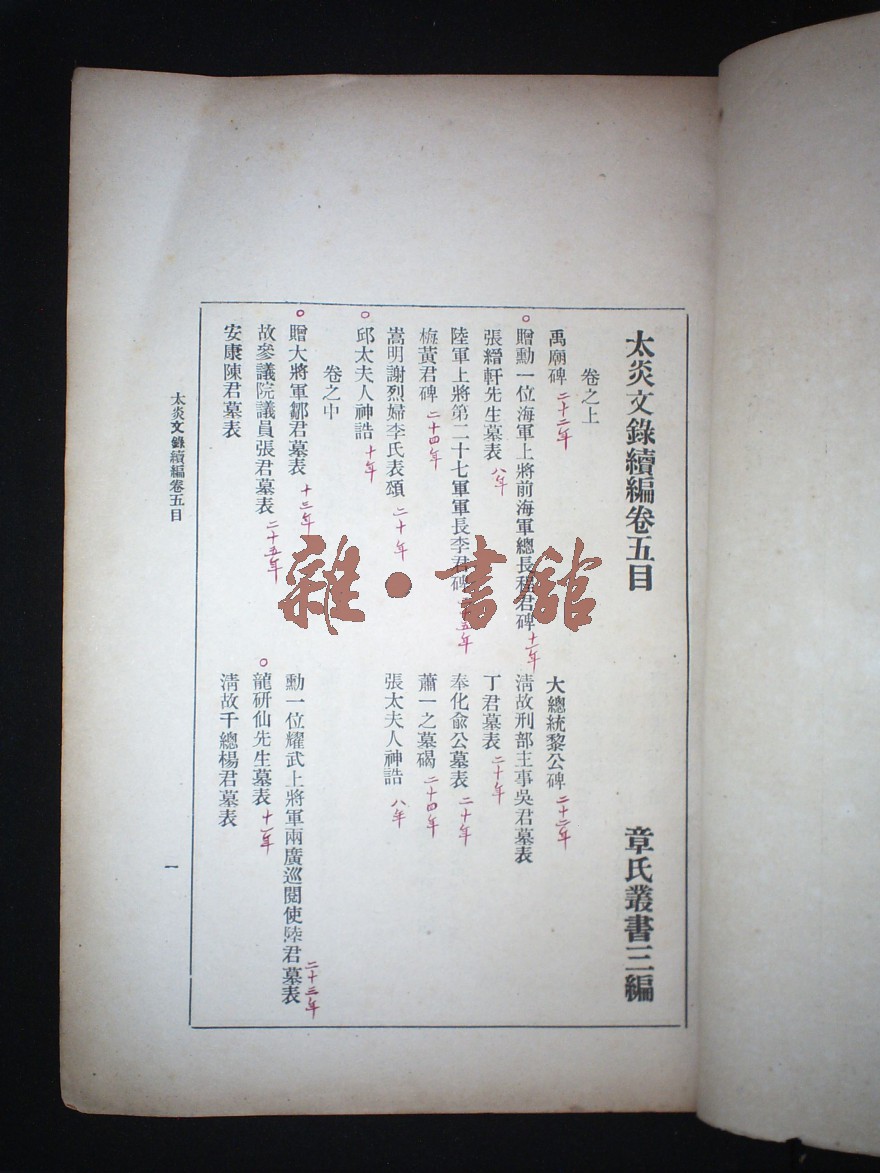 太炎文錄續編卷五目
章氏叢書三編
卷之上
禹廟碑 二十二年
大總統黎公碑 二十二年
贈勳一位海軍上將前海軍總長程君碑 十一年
清故刑部主事吳君墓表
張縉軒先生墓表 八年
丁君墓表 二十年
陸軍上將第二十七軍軍長李君碑 二十五年
奉化俞公墓表 二十年
梅黃君碑 二十四年
蕭一之墓碣 二十四年
嵩明謝烈婦李氏表頌 二十年
張太夫人神誥 八年
邱太夫人神誥 十年
卷之中
贈大將軍鄒君墓表 十三年
勳一位耀武上將軍兩廣巡閱使陸君墓表 二十三年
故參議院議員張君墓表 二十五年
龍研仙先生墓表 十一年
安康陳君墓表
清故千總楊君墓表
太炎文錄續編卷五目
一
雜·書館